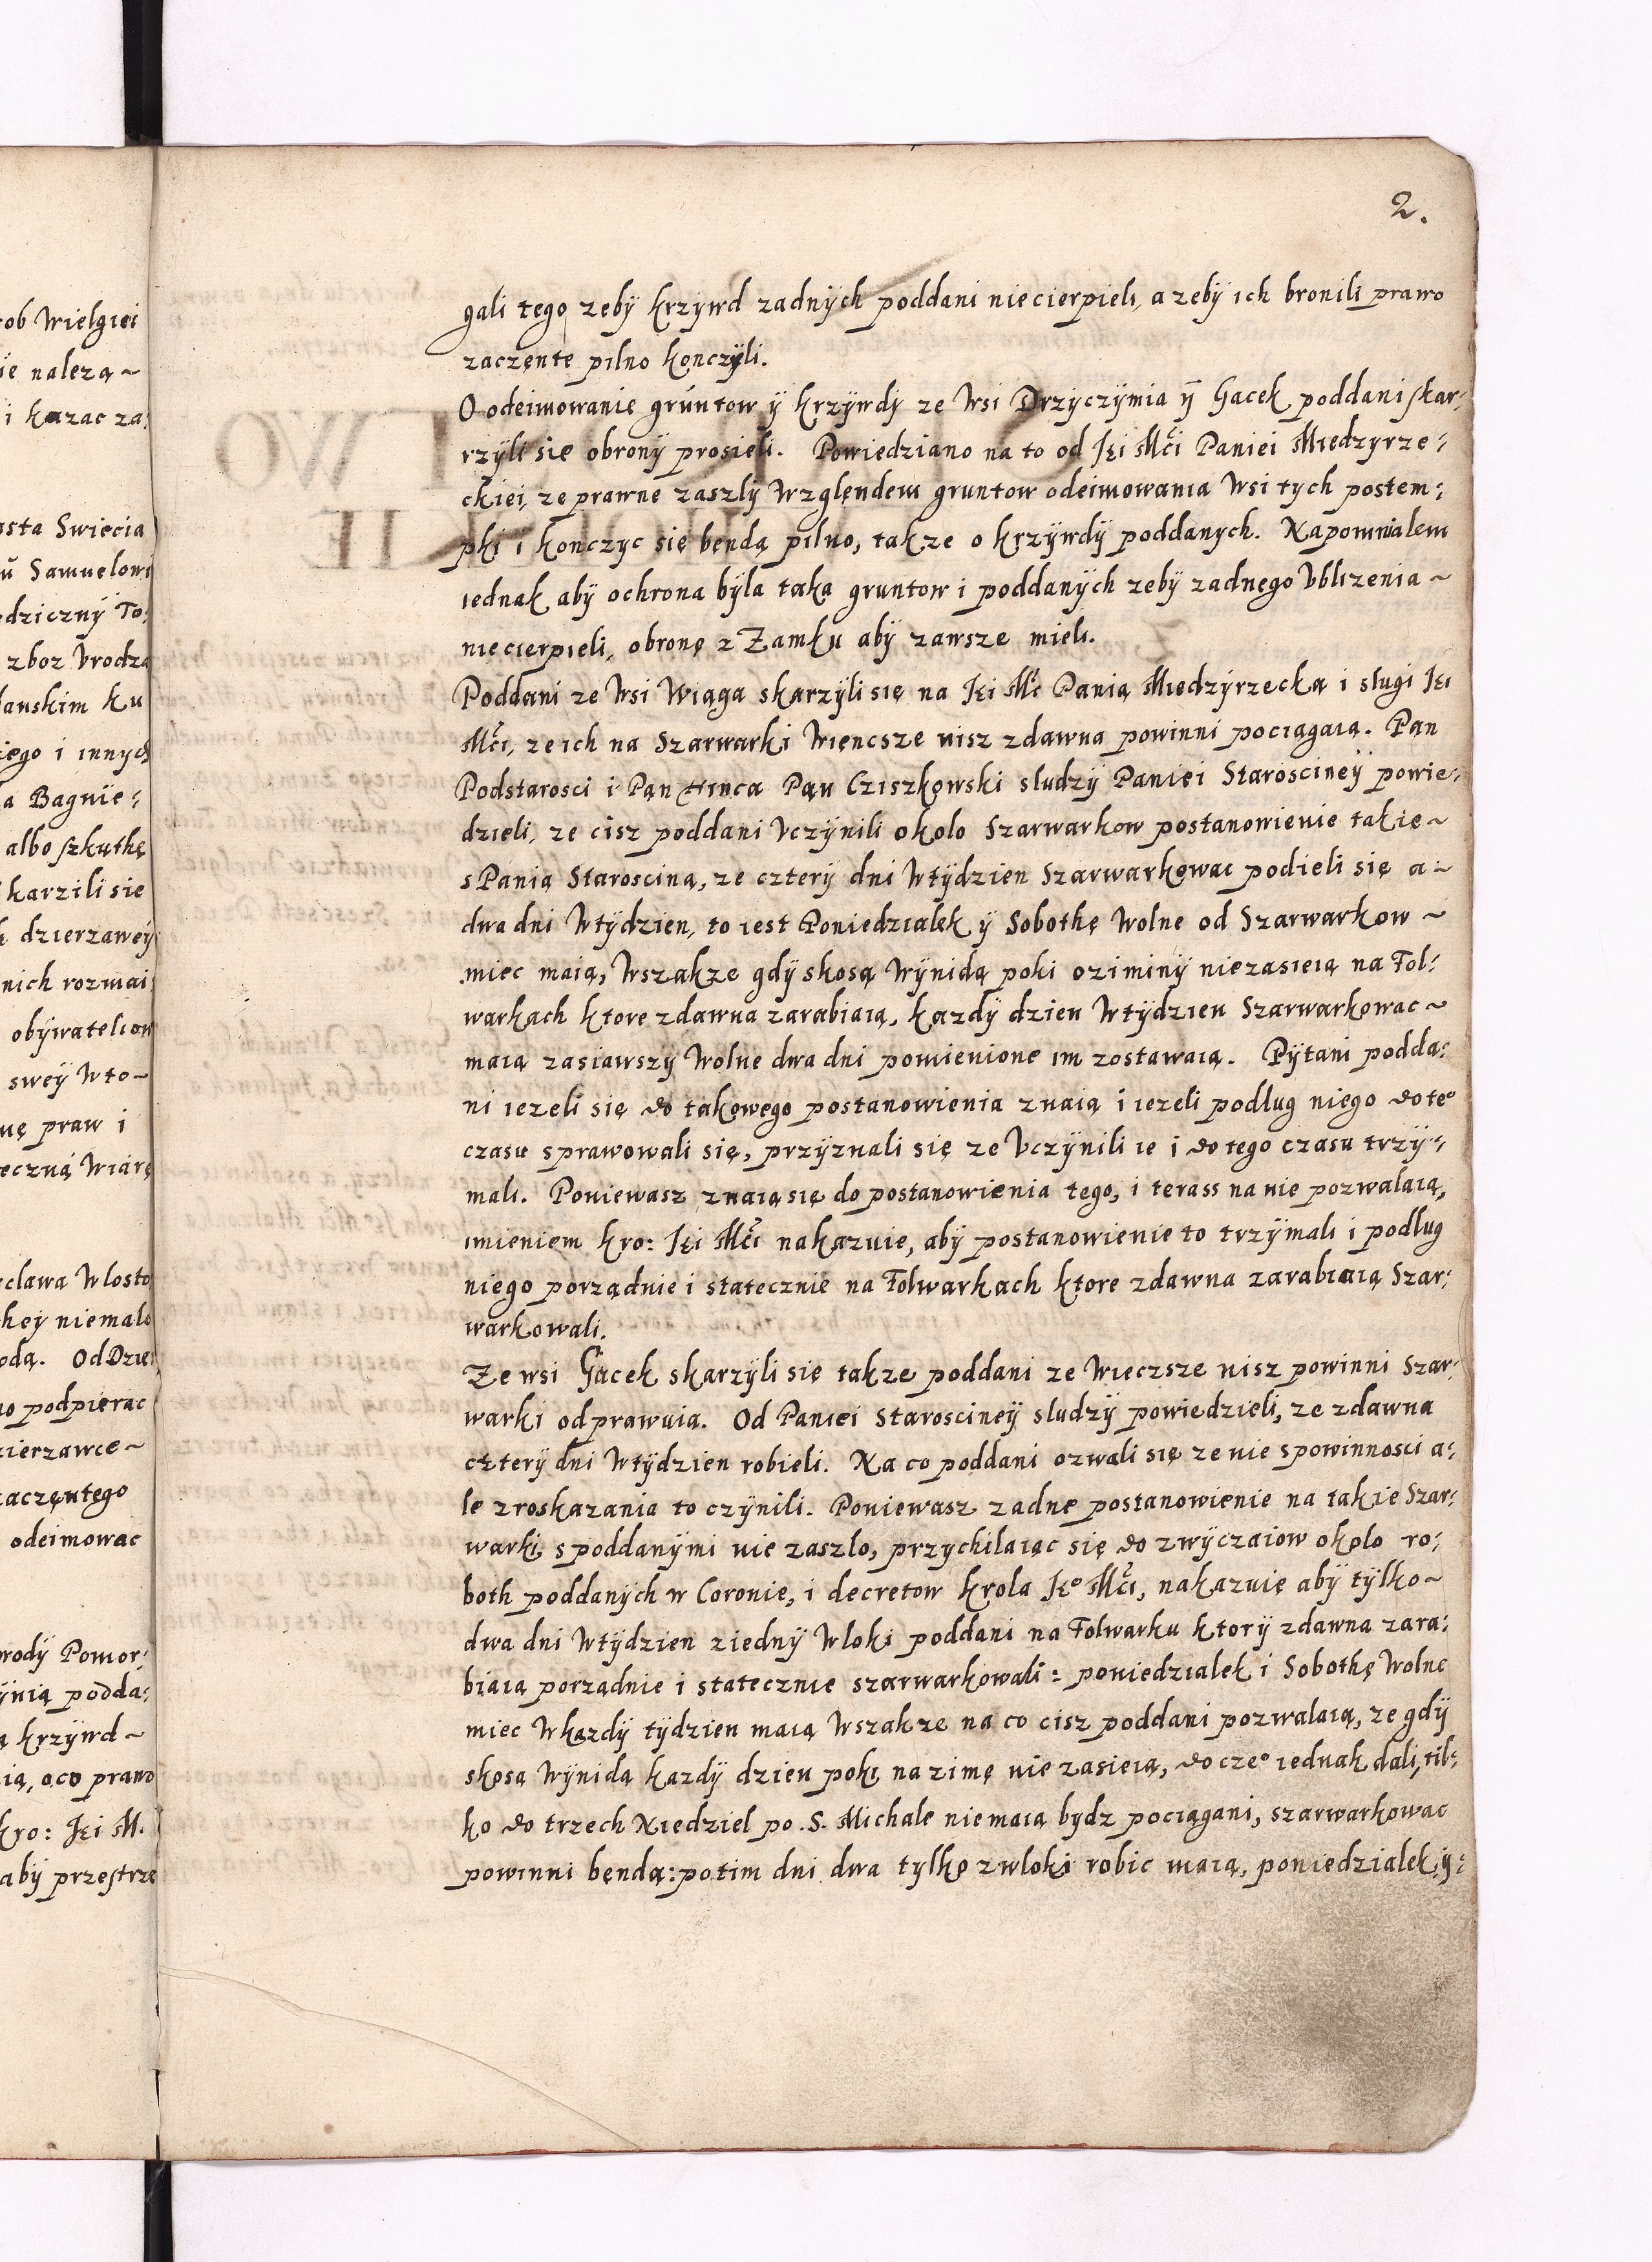 2.
gali tego zeby krzywd zadnÿch poddani niecierpieli, a zebÿ ich bronili prawo
zaczęnte pilno konczÿli.
O odeimowanie gruntow ÿ krzÿwdÿ ze Wsi Drzÿczÿmia ÿ Gacek poddani skar:
rzÿli się obronÿ prosieli. Powiedziano na to od Jęi Mći Paniei Miedzyrze:
ckiei, ze prawne zaszlÿ Wzglęndem gruntow odeimowania Wsi tych postem:
pki i konczyc się bendą pilno, takze o krzÿwdÿ poddanych. Napomnialem
iednak abÿ ochrona bÿla taka gruntow i poddanÿch zebÿ zadnego Vblizenia ~
niecierpieli, obronę z Zamku abÿ zawsze mieli.
Poddani ze Wsi Wiąga skarzÿli się na Jęi Mć Panią Miedzÿrzecką i slugi Jęi
Mći, ze ich na Szarwarki Wiencsze nisz zdawna powinni pociągaią. Pan
Podstarosci i Pan Hinca Pan Cziszkowski sludzÿ Paniei Starosciney powie:
dzieli, ze cisz poddani Vczÿnili okolo Szarwarkow postanowienie takie ~
s Panią Starosciną, ze czterÿ dni Wtÿdzien Szarwarkowac podieli się a ~
dwa dni Wtÿdzien, to iest Poniedzialek ÿ Sobothę Wolne od Szarwarkow ~
miec maią, Wszakze gdy skosą Wÿnidą poki oziminÿ niezasieią na Fol:
warkach ktore zdawna zarabiaią, kazdÿ dzien Wtÿdzien Szarwarkowac ~
maią zasiawszy Wolne dwa dni pomienione im zostawaią. Pÿtani podda:
ni iezeli się do takowego postanowienia znaią i iezeli podlug niego do teº
czasu sprawowali się, przÿznali się ze Vczÿnili ie i do tego czasu trzÿ:
mali. Poniewasz znaią się do postanowienia tego, i terass na nie pozwalaią,
imieniem kro: Jęi Mći nakazuie, abÿ postanowienie to trzÿmali i podlug
niego porządnie i statecznie na Folwarkach ktore zdawna zarabiaią Szar:
warkowali.
Ze wsi Gacek skarzÿli się takze poddani ze Wieczsze nisz powinni Szar:
warki odprawuią. Od Paniei Starosciney sludzÿ powiedzieli, ze zdawna
czterÿ dni Wtÿdzien robieli. Na co poddani ozwali się ze nie spowinnosci a:
le zroskazania to czÿnili. Poniewasz zadne postanowienie na takie Szar:
warki spoddanÿmi nie zaszlo, przychilaiąc się do zwÿczaiow okolo ro:
both poddanÿch w Coronie, i decretow krola Jeº Mći, nakazuię abÿ tÿlko ~
dwa dni Wtÿdzien ziednÿ Wloki poddani na Folwarku ktorÿ zdawna zara:
biaią porządnie i statecznie szarwarkowali: poniedzialek i Sobothę Wolne
miec Wkazdÿ tÿdzien maią Wszakze na co cisz poddani pozwalaią, ze gdÿ
skosą Wÿnidą kazdÿ dzien poki na zimę nie zasieią, do czeº iednak dali, til:
ko do trzech Niedziel po S. Michale niemaią bydz pociągani, szarwarkowac
powinni bendą: potim dni dwa tylko zwloki robic maią, poniedzialek ÿ: